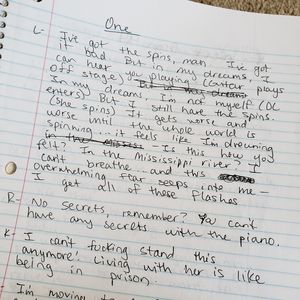 One
L- I've got the spins, man. I've got
it bad. But in my dreams, I
can hear you playing (Guitar plays
off stage) But in that dream
In my dreams, I'm not myself (OC
enters) But I still have the spins.
(She spins) It gets worse and
worse until the whole world is
spinning... it feels like I'm drowning
in the Missi - Is this how you
felt? In the Mississippi river? I
can't breathe... and this
overwhelming fear seeps into me -
I get all of these flashes
R- No secrets, remember? You can't
have any secrets with the piano.
K- I can't fucking stand this
anymore! Living with her is like
being in prison.
- I'm moving to